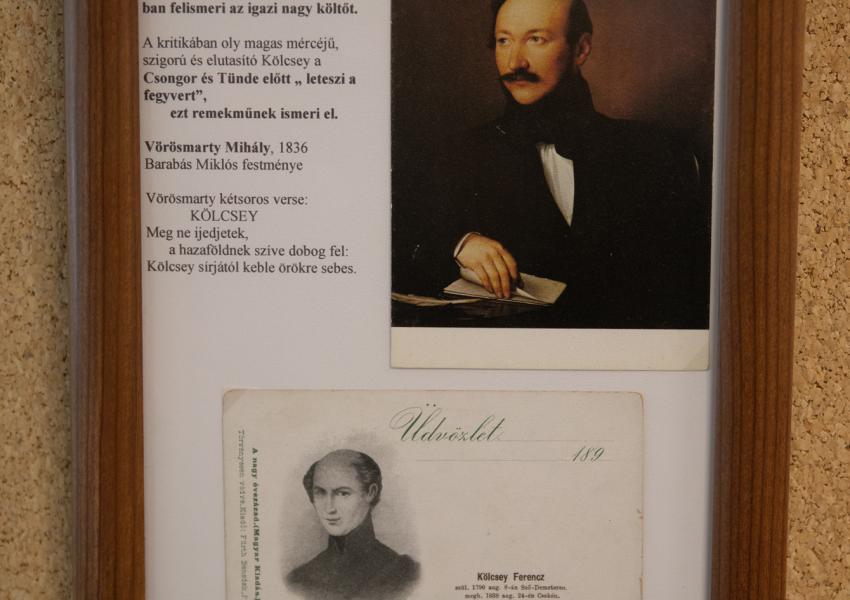 ban felismeri az igazi nagy költőt.
A kritikában oly magas mércéjű,
szigorú és elutasító Kölcsey a
Csongor és Tünde előtt „ leteszi a
fegyvert”,
ezt remekműnek ismeri el.
Vörösmarty Mihály, 1836
Barabás Miklós festménye
Vörösmarty kétsoros verse:
KÖLCSEY
Meg ne ijedjetek,
a hazaföldnek szíve dobog fel:
Kölcsey sírjától keble örökre sebes.
Üdvözlet
189
A nagy évszázad. (Magyar Kiadás.)
Törvényesen védve. Kiadó: Fürth
Kölcsey Ferencz
szül. 1790 aug. 8-án Sző-Demeteren.
megh. 1838 aug. 24-én Csekén.